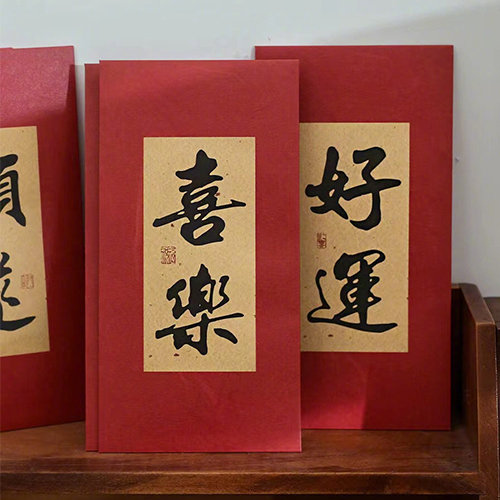 喜樂
好運